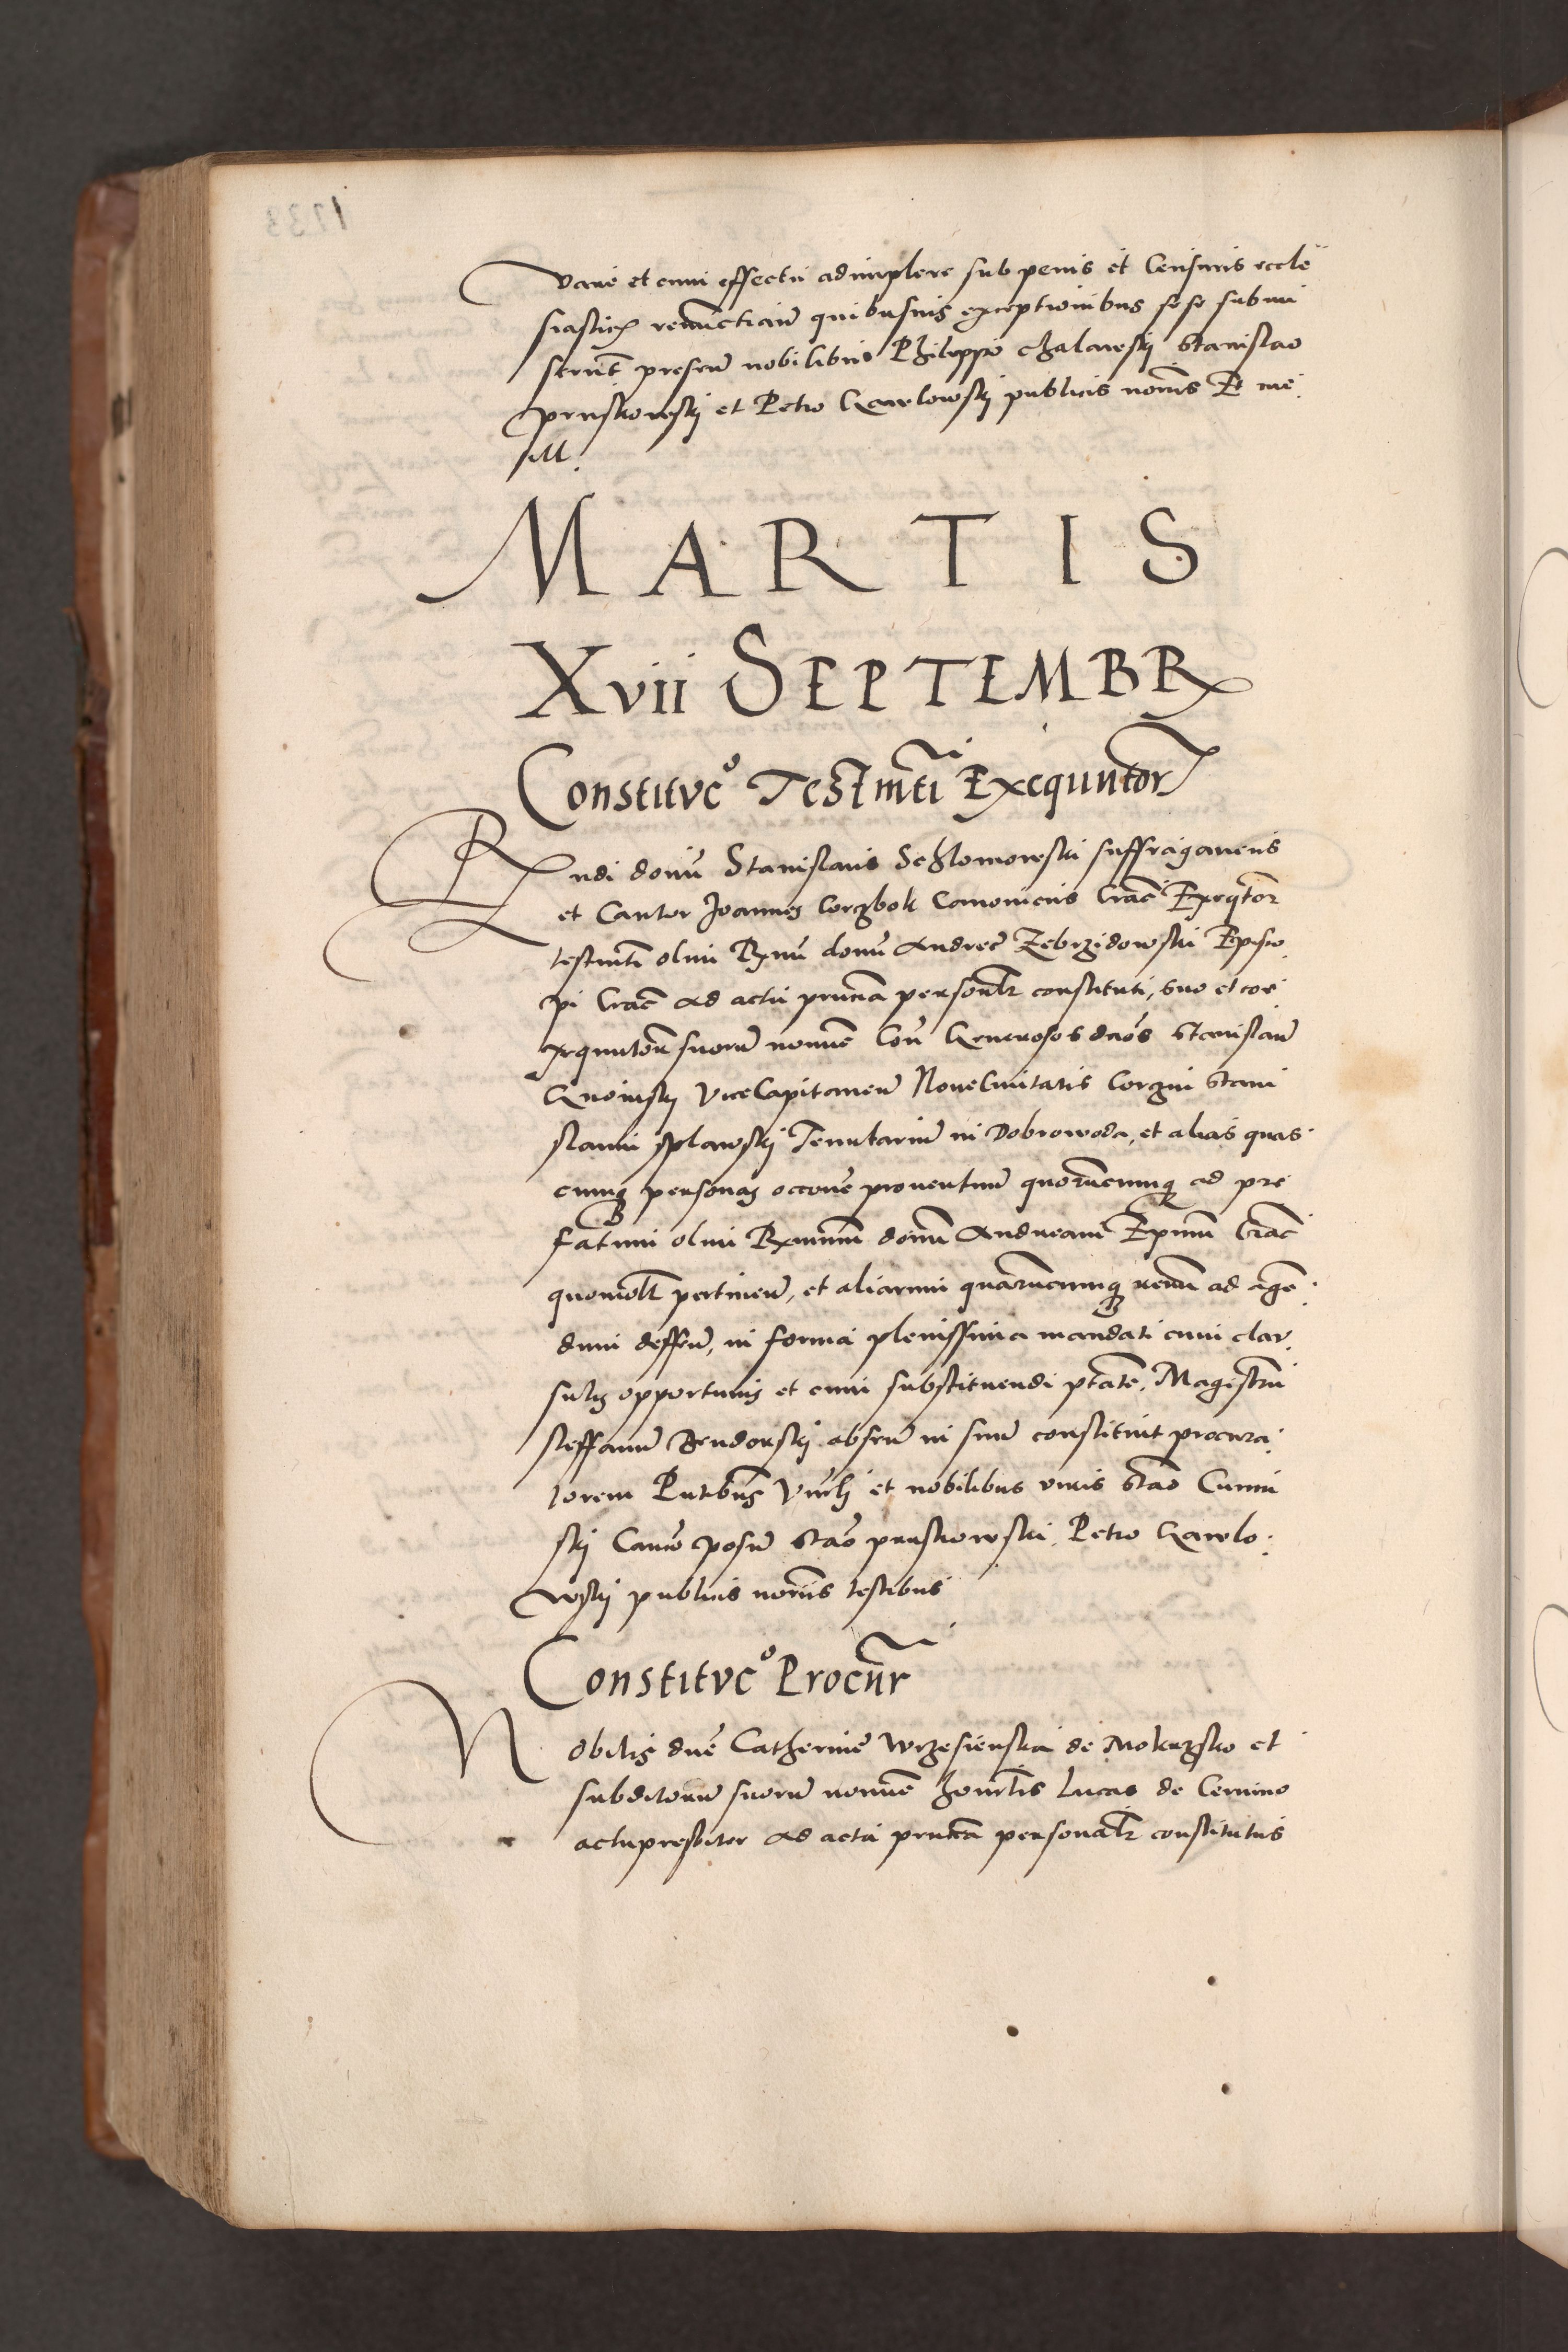 vare et cum effectu adimplere sub penis et Censuris eccle
siasticis renunctian̄ quibusuis exceptionibus sese submi
serunt presen̄ nobilibus Philippo Chalawskÿ Stanislao
pruskowskÿ et Petro Karlowskÿ publicis nonīs Et me
SM.
MARTIS
Xvii SEPTEMBR
Constitucº Testmti Exequutor
Rndi domī Stanislaus Schlomowski suffraganeus
et Cantor Joannes Corzbok Canonicus Crac̄ Exeqtor
testmti olim Rmi domī Andree Zebrzidowski Episco
pi Crac̄ ad actū prntia personalr constituti, suo et coe
xequutorū suorū nomine Con̄ Generosos dnōs Stanislaū
Vice Capitaneū Noue Ciuitatis Corzin Stani
slaum Splawskÿ Tenutariū in Dobrowoda, et alias quas
cunqz personas occone prouentuum quorumcunqz ad pre
fatum olim Rxmum domū Andream Epum Crac̄
quomolt pertinen̄, et aliarum quarumcunqz rerum ad agen
dum deffen̄, in forma plenissima mandati cum clau
sulis opportunis et cum substituendi ptate, Magistrū
Steffanū absen̄ in sum̄ constituit procura
torem Prntibus et nobilibus viris Stao
skÿ Canco Posn̄ Stao pruskowski, Petro Karlo
wskÿ publicis nonīs testibus
Constitucº Procur
Nobilis dne Catherine Wrzesienska de Mokrzsko et
subditorum suorū nomine honrlis Lucas de Cernino
actupresbiter ad acta prntia personalr constitutus